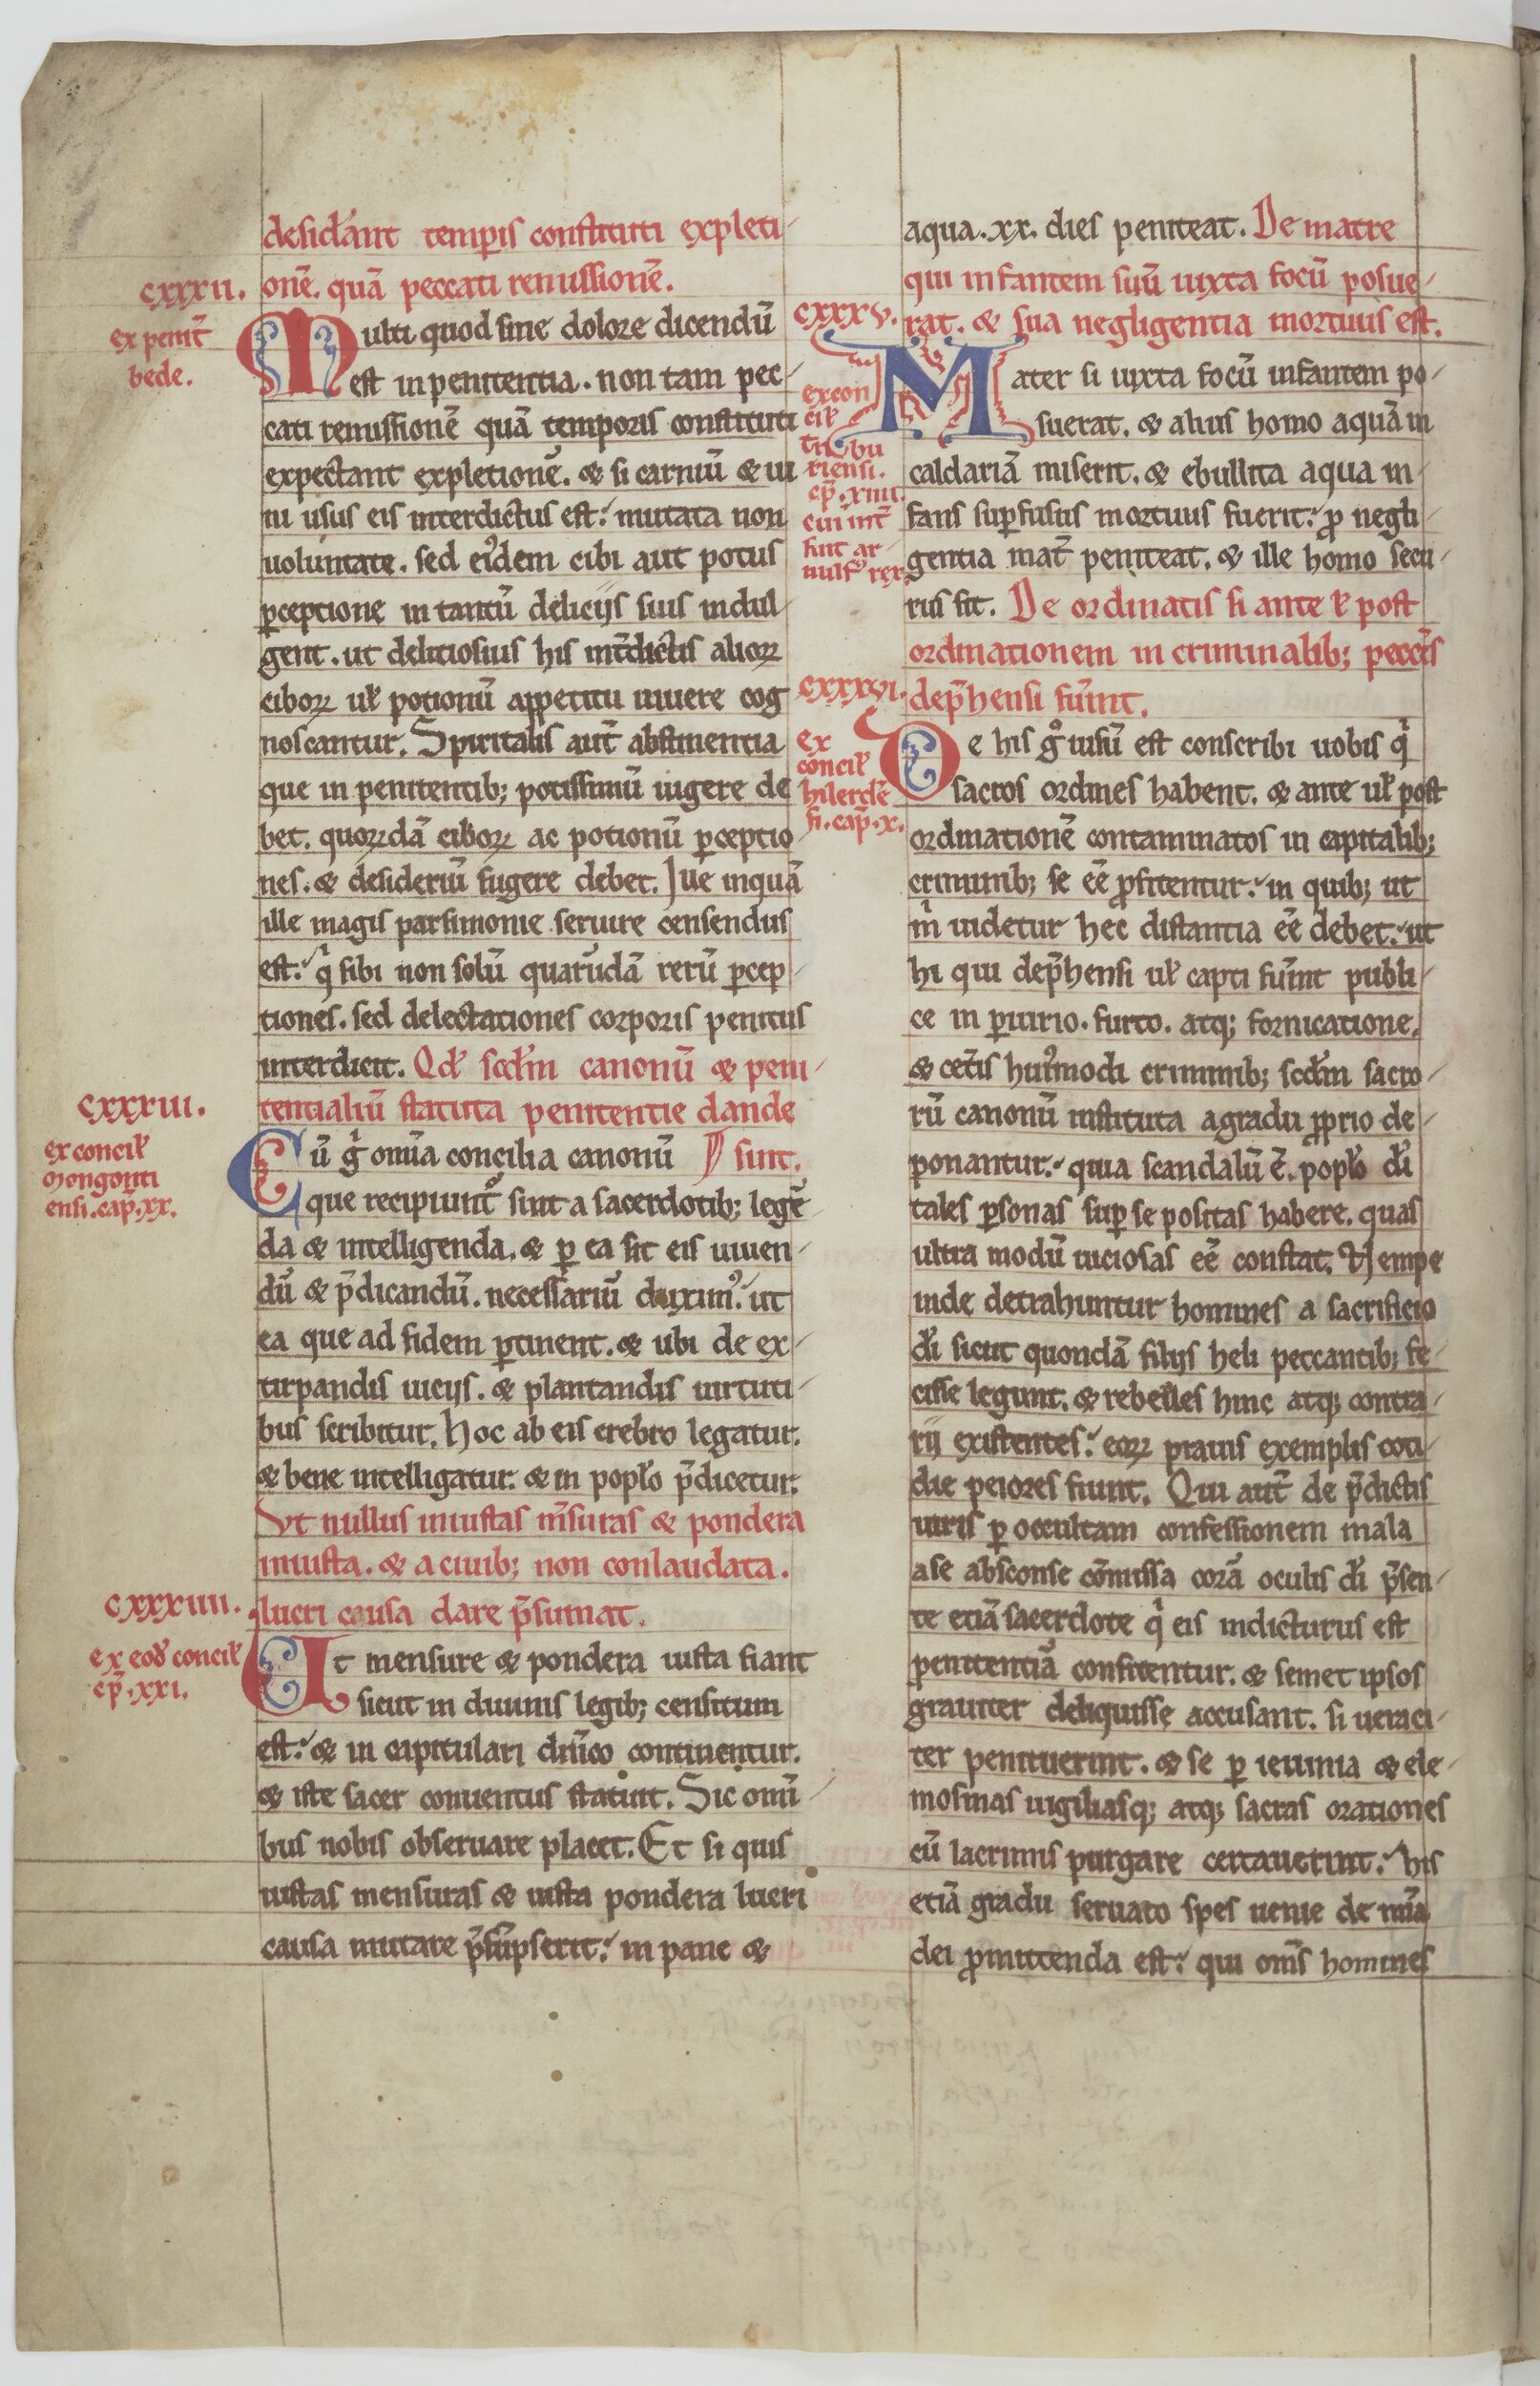 desid'ant temp̲is constituti expleti-
CXXXII.
onē. quā peccati remissionē.
ex penit̄
bede.
Multi quod sine dolore dicendū
est in penitentia. non tam pec-
cati remissionē quā temporis constituti
expectant expletionē. & si carniū & ui
ni usus eis interdictus est: mutata non
uoluntate. sed ei9dem cibi aut potus
p̲ceptione in tantū delicijs suis indul-
gent. ut delitiosius his int̄dictis alioꝝ
ciboꝝ uł potionū appetitu uiuere cog
noscantur. Spiritalis aut̄ abstinentia
que in penitentib; potissimū uigere de
bet. quoꝝdā ciboꝝ ac potionū p̲ceptio
nes. & desideriū fugere debet. Iure inquā
ille magis parsimonie seruire censendus
est: q̇ sibi non solū quarūdā rerū p̲cep-
tiones. sed delectationes corporis penitus
interdicit. Qđ scđm canonū & peni-
CXXXIII.
tentialiū statuta penitentie dande
ex concił
mogonti
ensi. cap̄. xx.
Cū g̊ om̄ia concilia canonū ¶ sint.
que recipiunt᷑ sint a sacerdotib; legē
da & intelligenda. & p̲ ea sit eis uiuen-
dū & p̄dicandū. necessariū duxim9: ut
ea que ad fidem p̲tinent. & ubi de ex-
tirpandis uicijs. & plantandis uirtuti-
bus scribitur. Hoc ab eis crebro legatur.
& bene intelligatur. & in popło p̄dicetur.
Ut nullus iniustas m̄suras & pondera
iniusta. & a ciuib; non conlaudata.
CXXXIIII.
lucri causa dare p̄sumat.
ex eođ concił
cp̄. XXI.
Ut mensure & pondera iusta fiant
sicut in diuinis legib; censitum
est: & in capitulari dn̄ico continentur.
& iste sacer conuentus statuit. Sic omi-
bus nobis obseruare placet. Et si quis
iustas mensuras & iusta pondera lucri
causa mutare p̄sūpserit: in pane &
aqua. xx. dies peniteat. De matre
qui infantem suū iuxta focū posue-
CXXXV.
rat. & sua negligentia mortuus est.
ex con
cił
tribu
riensi.
cp̄. XIII.
cui int̄
fuit ar-
nulf9 rex
Mater si iuxta focū infantem po-
suerat. & alius homo aquā in
caldariā miserit. & ebullita aqua in-
fans sup̲fusus mortuus fuerit: ꝓ negli-
gentia mat̄ peniteat. & ille homo secu-
rus sit. De ordinatis si ante ł post
ordinationem in criminalib; pecc̄is
CXXXVI.
dep̄hensi fuūint.
ex
concił
hilerdē
si. cap̄. X.
De his g̊ uisū est conscribi uobis q̇
sacros ordines habent. & ante uł post
ordinationē contaminatos in capitalib;
criminib; se eē ꝓfitentur: in quib; ut
m̊ uidetur hec distantia eē debet: ut
hi qui dep̄hensi uł capti fuūint publi-
ce in p̲iurio. furto. atq; fornicatione.
& cet̄is hui9modi criminib; scđm sacro-
rū canonū instituta a gradu ꝓprio de-
ponantur: quia scandalū ē. popło di
tales p̲sonas sup̲ se positas habere. quas
ultra modū uiciosas eē constat. Nempe
inde detrahuntur homines a sacrificio
di sicut quondā filijs heli peccantib; fe-
cisse legunt. & rebelles hinc atq; contra-
rij existentes: eoꝝ prauis exemplis coti-
die peiores fiunt. Qui aut̄ de p̄dictis
uiris p̲ occultam confessionem mala
a se absconse cōmissa corā oculis di p̄sen-
te etiā sacerdote q̇ eis indicturus est
penitentiā confitentur. & semet ipsos
grauiter deliquisse accusant. si ueraci-
ter penituerint. & se p̲ ieiunia & ele-
mosinas uigiliasq; atq; sacras orationes
cū lacrimis purgare certauerint: his
etiā gradu seruato spes uenie de mīa
dei ꝓmittenda est: qui om̄s homines